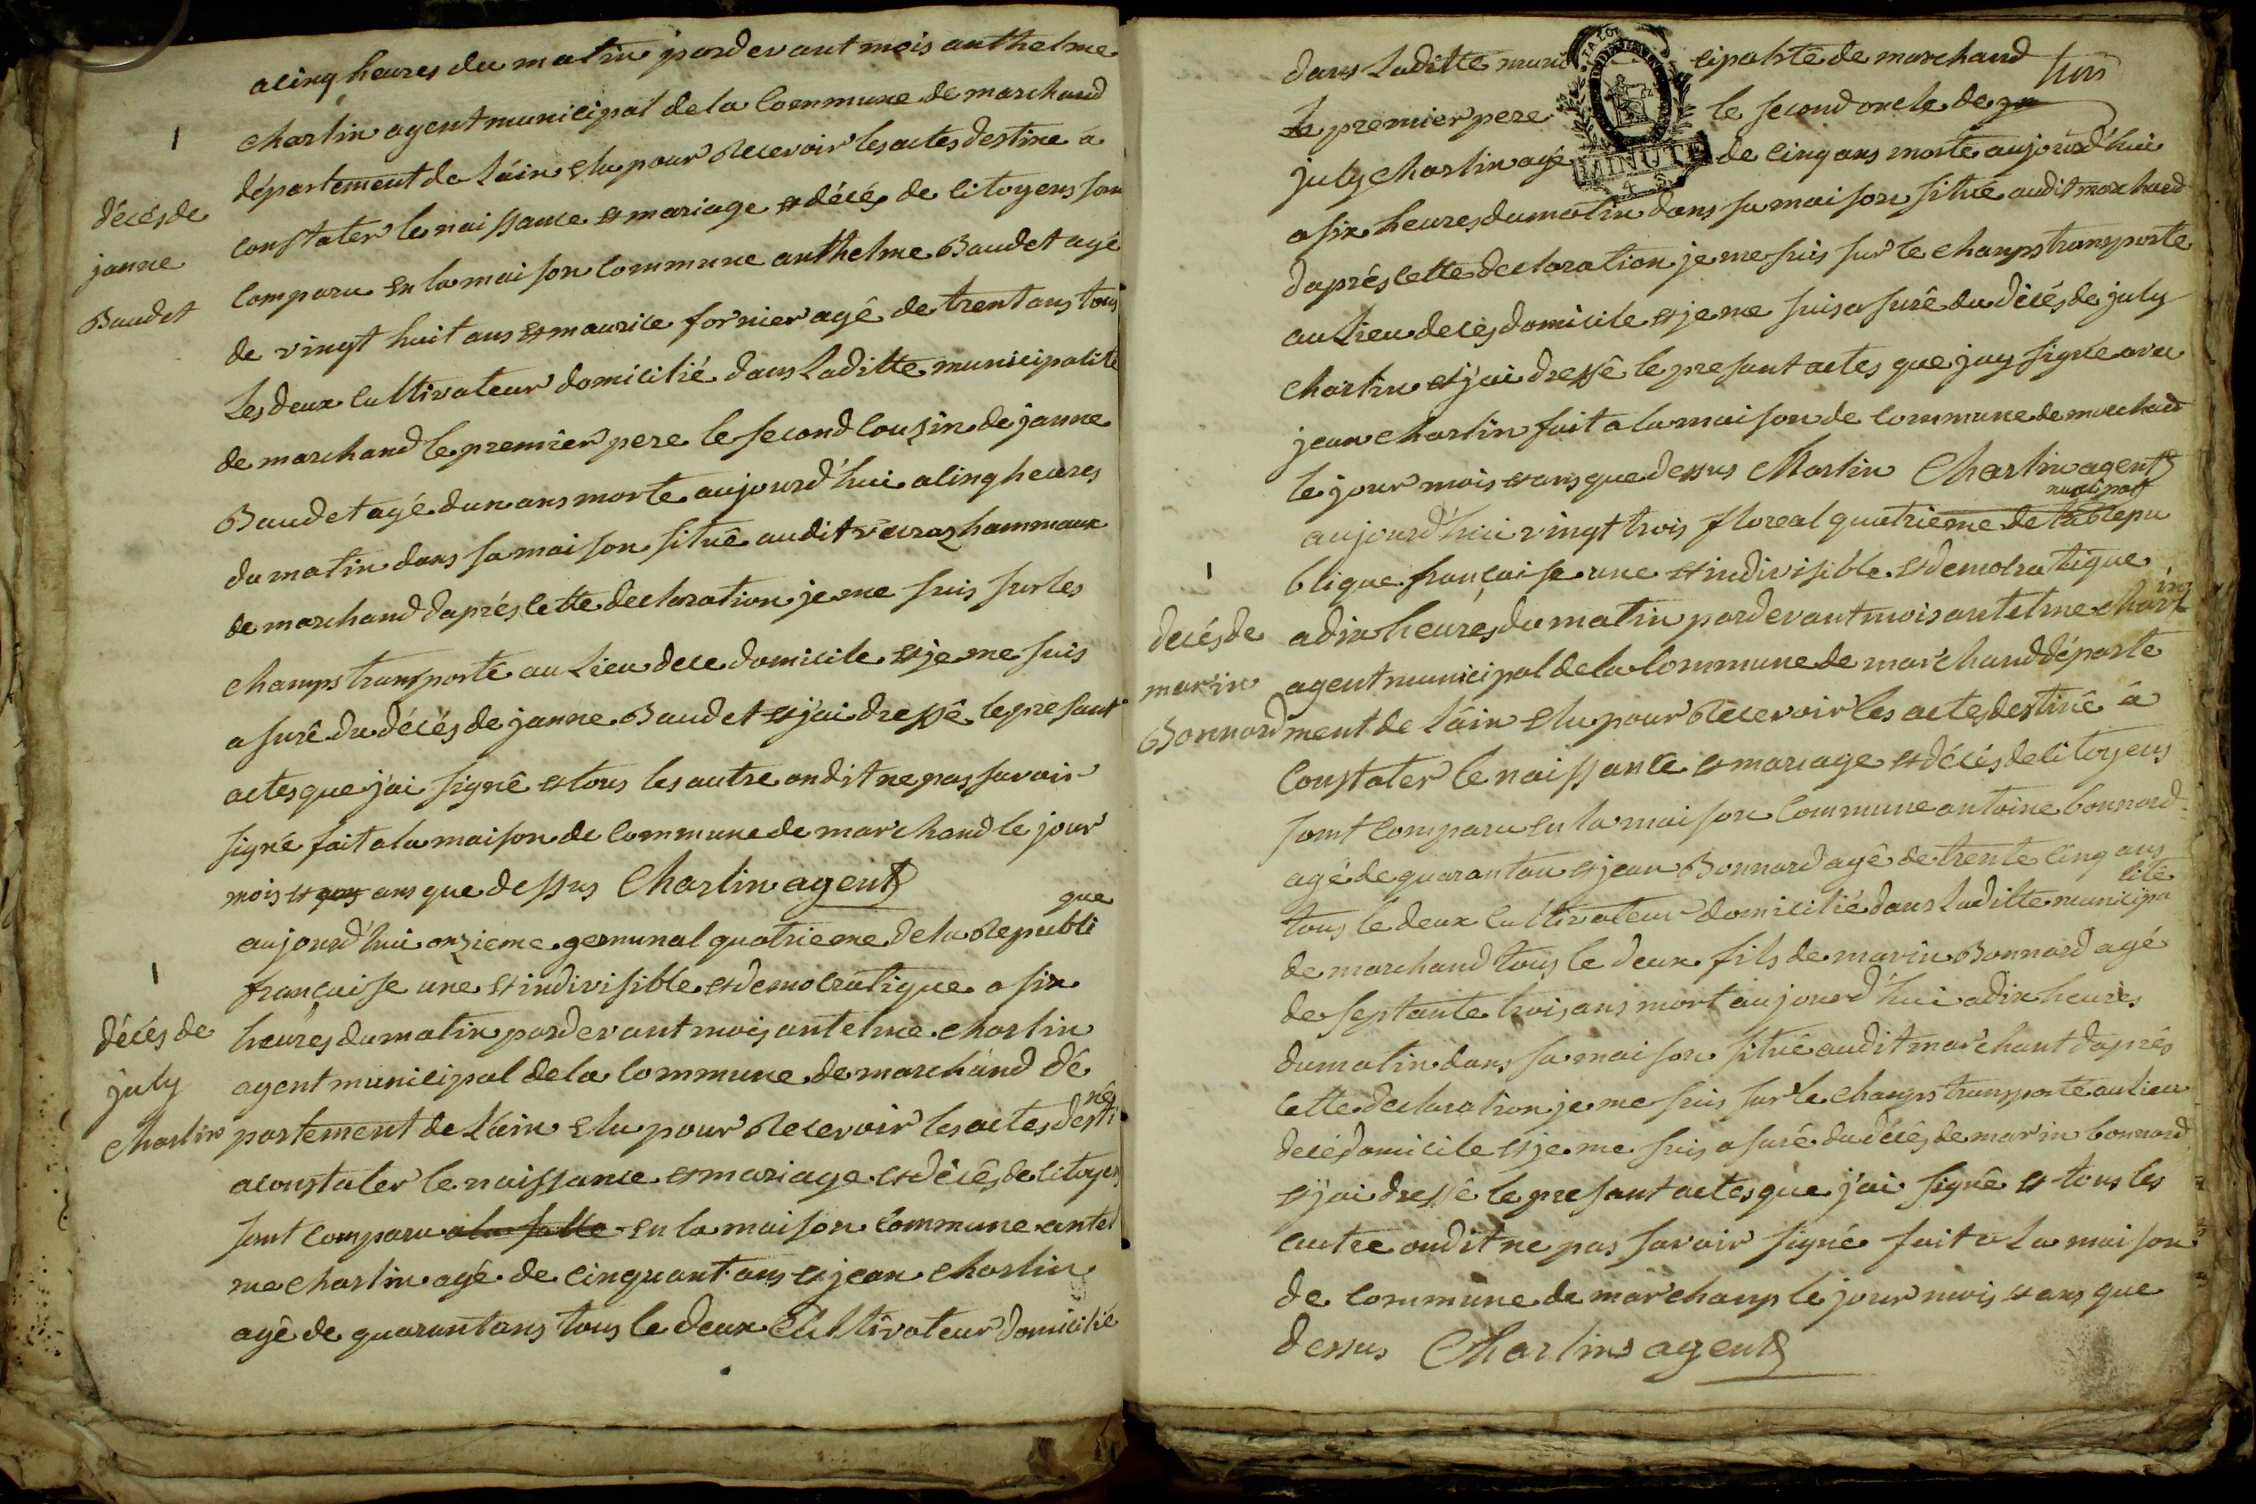 acinq heures du matin pardevant mois anthelme
charlin agent municipal de la Commune de marchand
département de Láin elu pour Recevoir les actes destiné a
constater le naissance et mariage et décés de citoyens sont
comparu en la maison Commune anthelme Baudet agé
de vingt huit ans et maurice fornier agé de trent ans tous
Les deux Cultivateur domicilié dans Laditte municipalité
de marchand le premier pere le second couzin de janne
Baudet agé dun ans morte aujourd'hui a cinq heures
du matin dans sa maison situé audit hammaux
de marchand daprés cette declaration je me suis sur les
champs transporté au Lieu de ce domicile et je me suis
asuré du décés de janne Baudet et j'ai dressé le presant
actes que j'ai signé et tous les autre on dit ne pas savoir
signé fait a la maison de commune de marchand le jour
mois et ans que dessus Charlin agent
décés de
janne
Baudet
aujourd'hui onzieme germinal quatrieme de la Republi
que
francaise une et indivisible et democratique a six
heures du matin pardevant mois antelme charlin
agent municipal de la Commune de marchand dé
partement de Láin elu pour Recevoir les actes desti
né
a constater le naissance et mariage et décés de citoyens
sont comparu a la salle en la maison Commune antel
me charlin agé de cinquant ans et jean charlin
agé de quarant ans tous le deux Cultivateur domicilié
décés de
july
charlin
dans Laditte muni cipalité de marchand
Le premier pere le second oncle de
july charlin agé de cinq ans morte aujourd'hui
a six heures du matin dans sa maison situé audit marchand
daprés cette declaration je me suis sur le champs transporte
au Lieu de ces domicile et je me suis asuré du décés de july
charlin et j'ai dressé le presant actes que jay signé avec
jean charlin fait a la maison de commune de marchand
le jour mois et ans que dessus Charlin Charlin agent
municipal
MINUTE
aujourd'hui vingt trois floreal quatrieme de la Repu
blique française une et indivisible et democratique
a dix heures du matin pardevant mois antelme charl
in
agent municipal de la Commune de marchand départe
ment de Láin elu pour Recevoir les actes destiné á
Constater le naissance et mariage et décés de citoyens
sont comparu en la maison Commune antoine bonnard
agé de quarant an et jean Bonnard agé de trente cinq ans
tous le deux Cultivateur domicilié dans Laditte municipa
lité
de marchand tous le deux fils de marin Bonnard agé
de septante trois ans mort aujourd'hui a dix heures
du matin dans sa maison situé audit marchant daprés
cette declaration je me suis sur le champs transporté au lieu
de ces domicile et je me suis asuré du décés de marin bonnard
et j'ai dressé le presant actes que j'ai signé et tous les
autre on dit ne pas savoir signé fait a La maison
de commune de marchamp le jour mois et ans que
dessus Charlin agent
decés de
marin
Bonnard